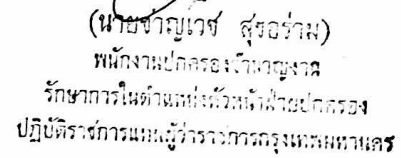 (นายชาญเวช สุขอร่าม)
พนักงานปกครองชำนาญงาน
รักษาการในตำแหน่งหัวหน้าฝ่ายปกครอง
ปฏิบัติราชการแทนผู้ว่าราชการกรุงเทพมหานคร